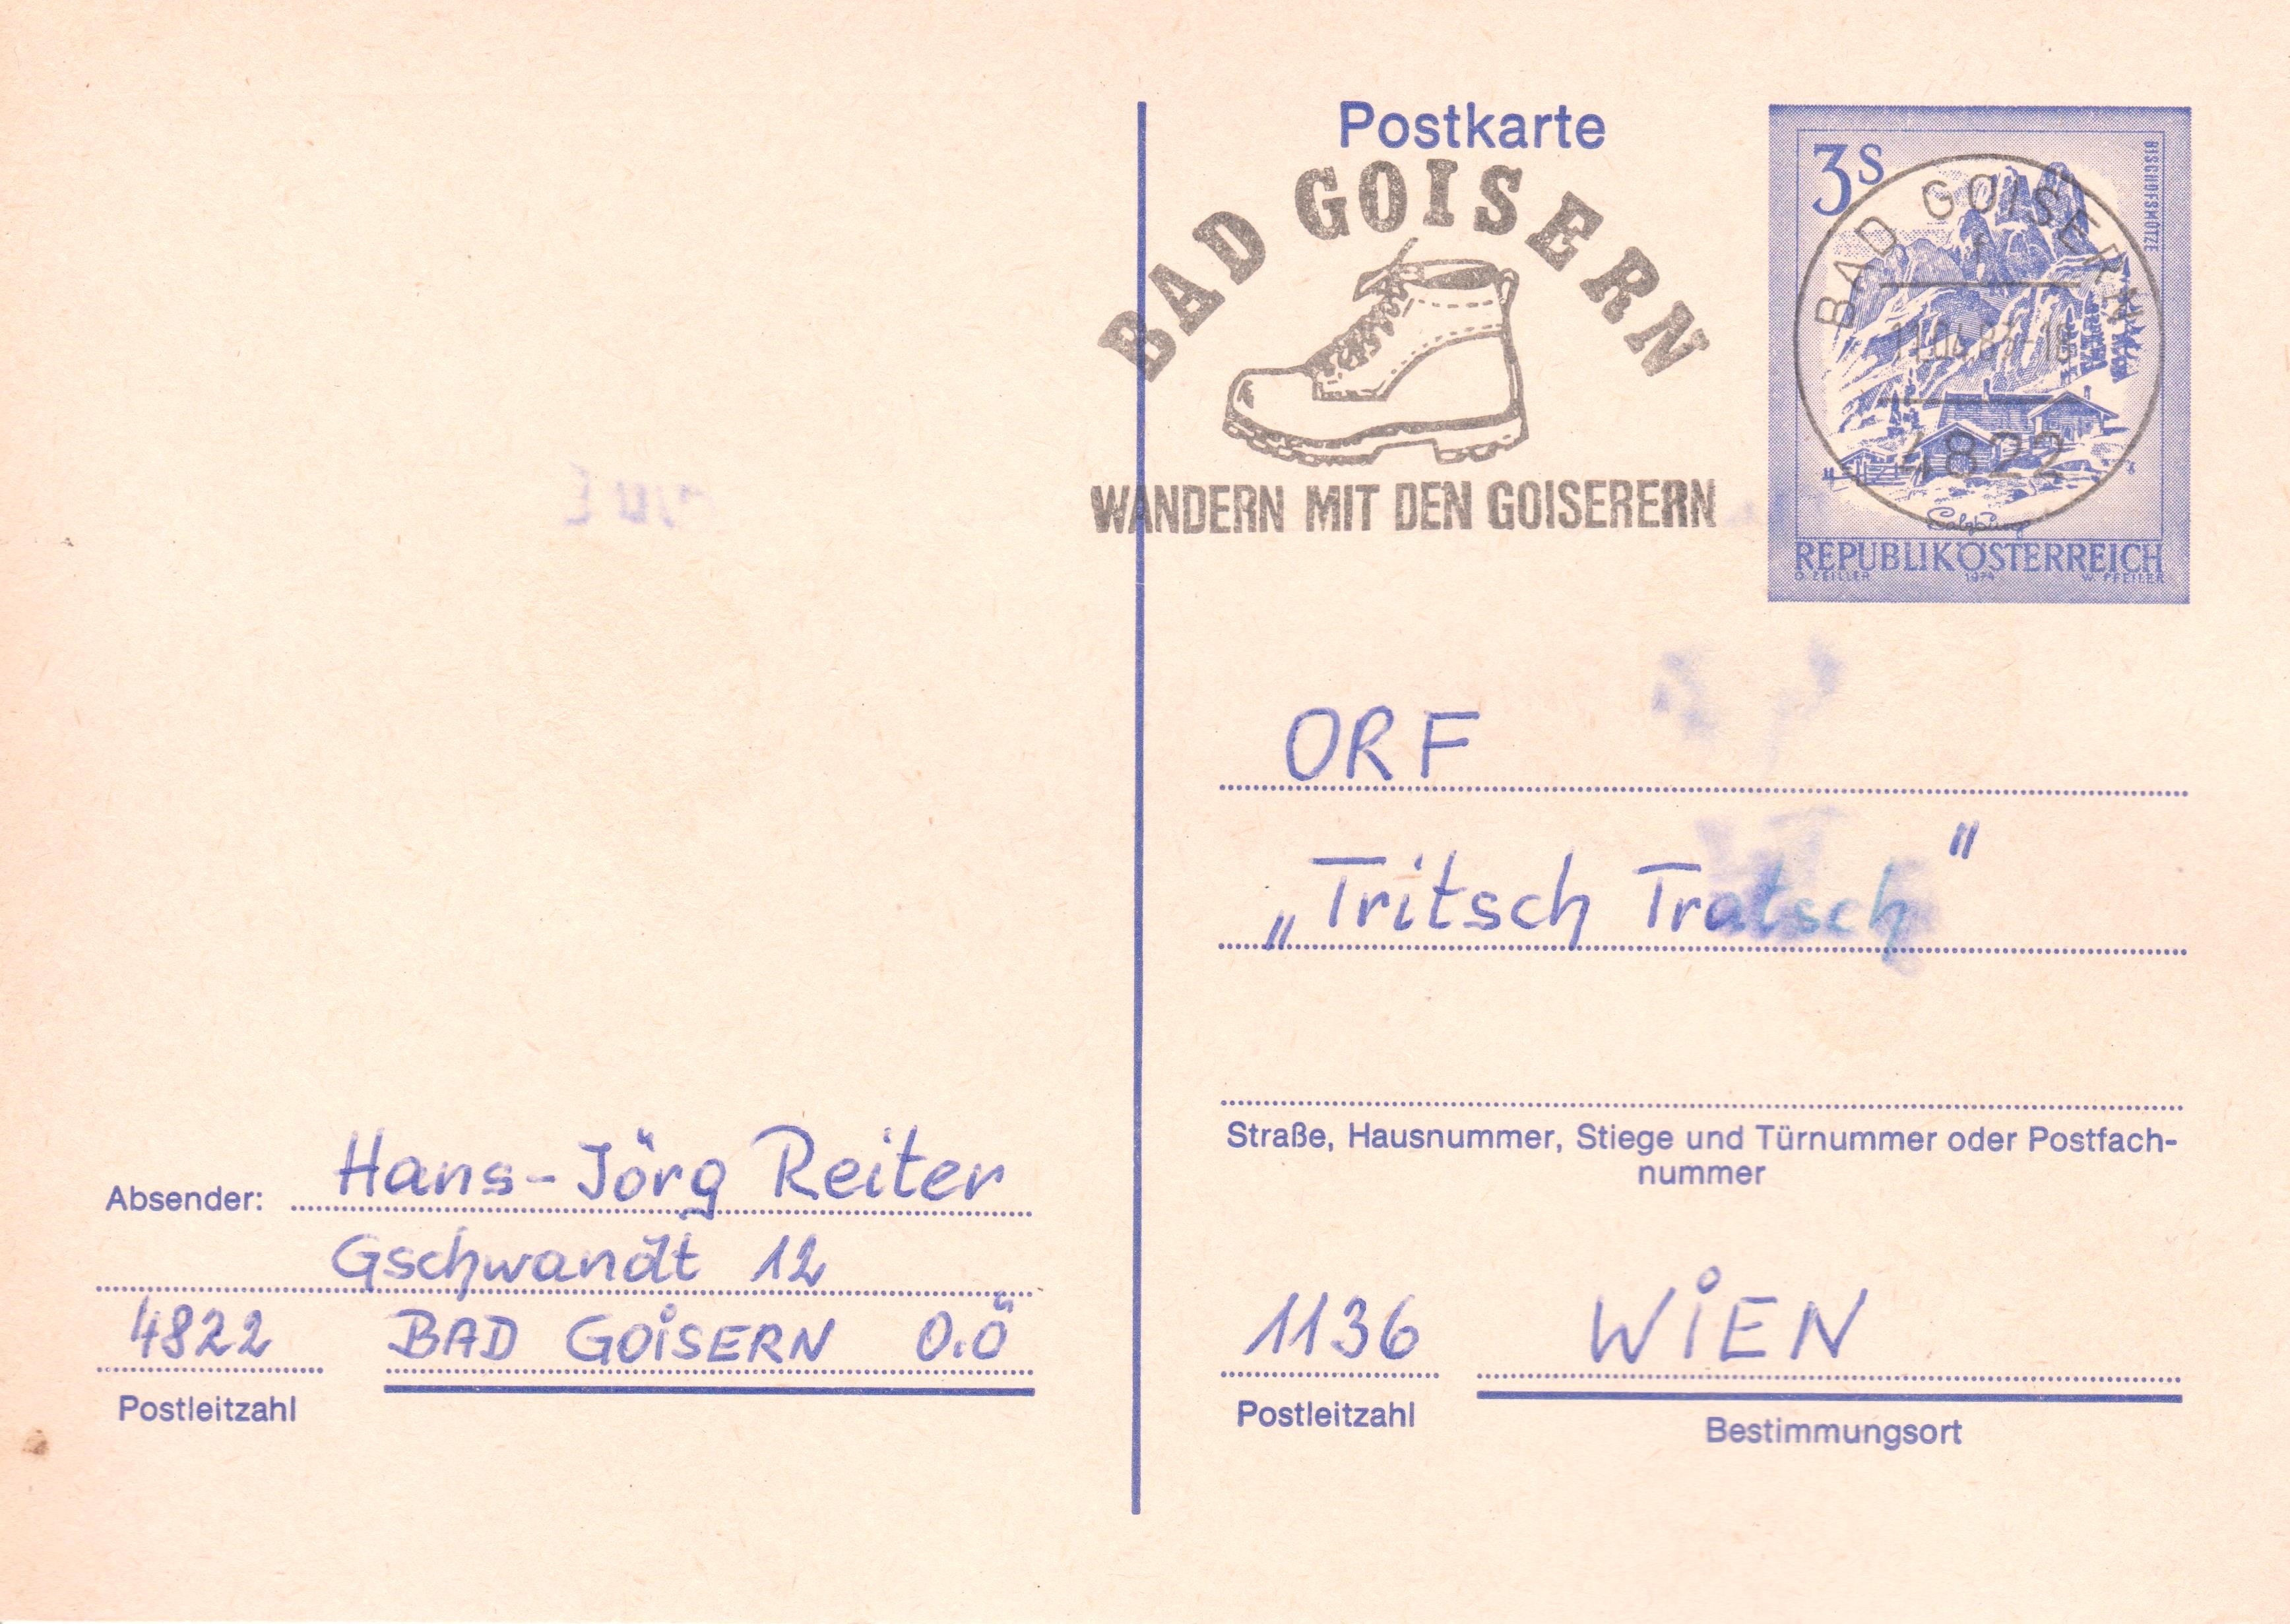 Postkarte
BAD GOISERN
WANDERN MIT DEN GOISERERN
3S
BISCHOFSMÜTZE
BAD GOISERN
4822
Salzburg
REPUBLIK ÖSTERREICH
O. ZEILLER 1974 W. PFEILER
ORF
„Tritsch Tratsch"
Straße, Hausnummer, Stiege und Türnummer oder Postfach-
nummer
1136 WiEN
Postleitzahl
Bestimmungsort
Absender: Hans-Jörg Reiter
Gschwandt 12
4822 BAD GOiSERN O.Ö
Postleitzahl